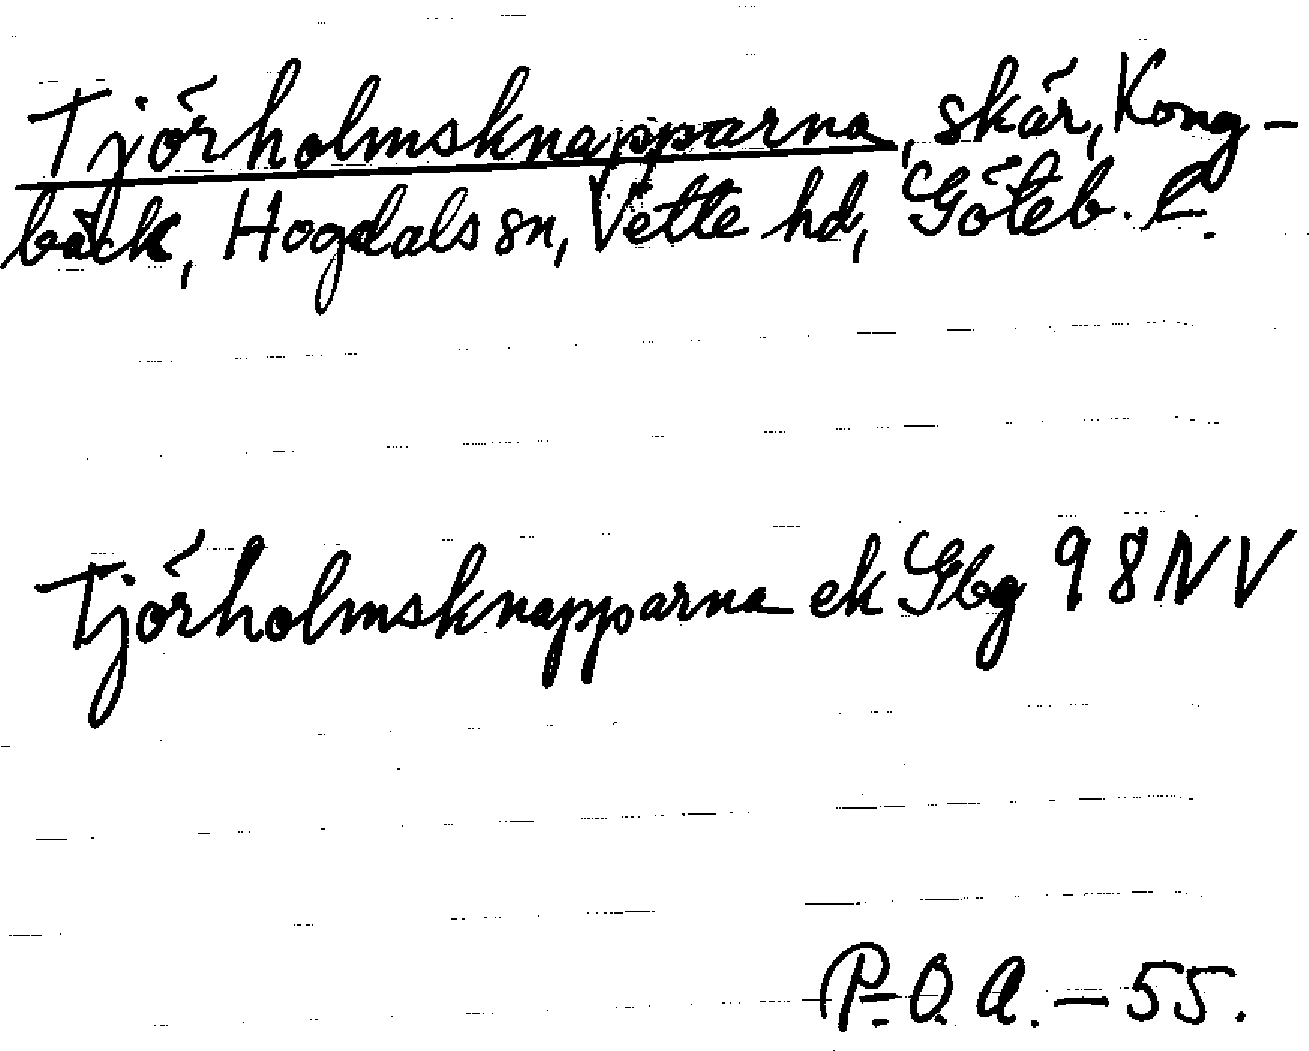 Tjörholmsknapparna, skär, Kong-
bäck, Hogdals sn, Vette hd, Göteb. L.
Tjörholmsknapparna ek Gbg 98 NV
P.-O. A. - 55.